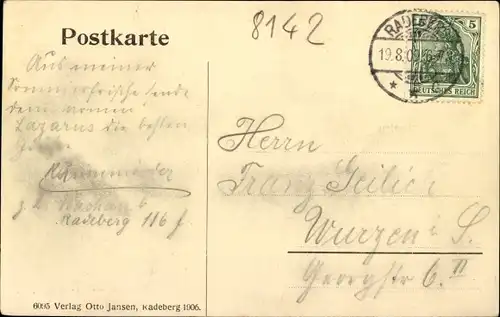 Postkarte
8142
RADEBERG
19.8.0
5
DEUTSCHES REICH
Aus meiner
Sommerfrische sende
dem armen
Lazarus die besten
z.
Radeberg 116 f
Herrn
Franz
Wurzen i. S.
Georgstr 6. II
6095 Verlag Otto Jansen, Radeberg 1906.